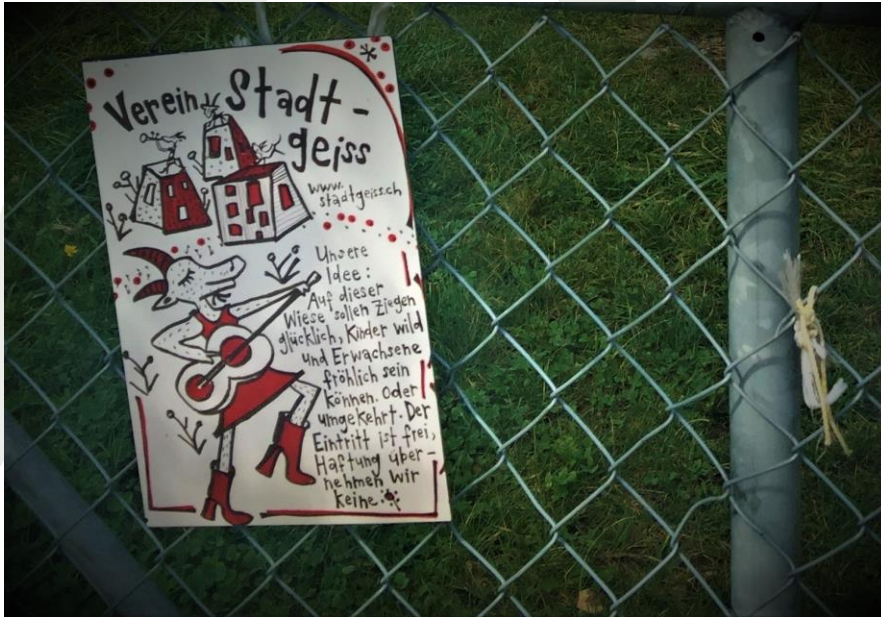 Verein Stadt-
geiss
www.
stadtgeiss.ch
Unsere
Idee:
Auf dieser
Wiese sollen Ziegen
glücklich, Kinder wild
und Erwachsene
fröhlich sein
können. Oder
umgekehrt. Der
Eintritt ist frei,
Haftung über-
nehmen wir
keine